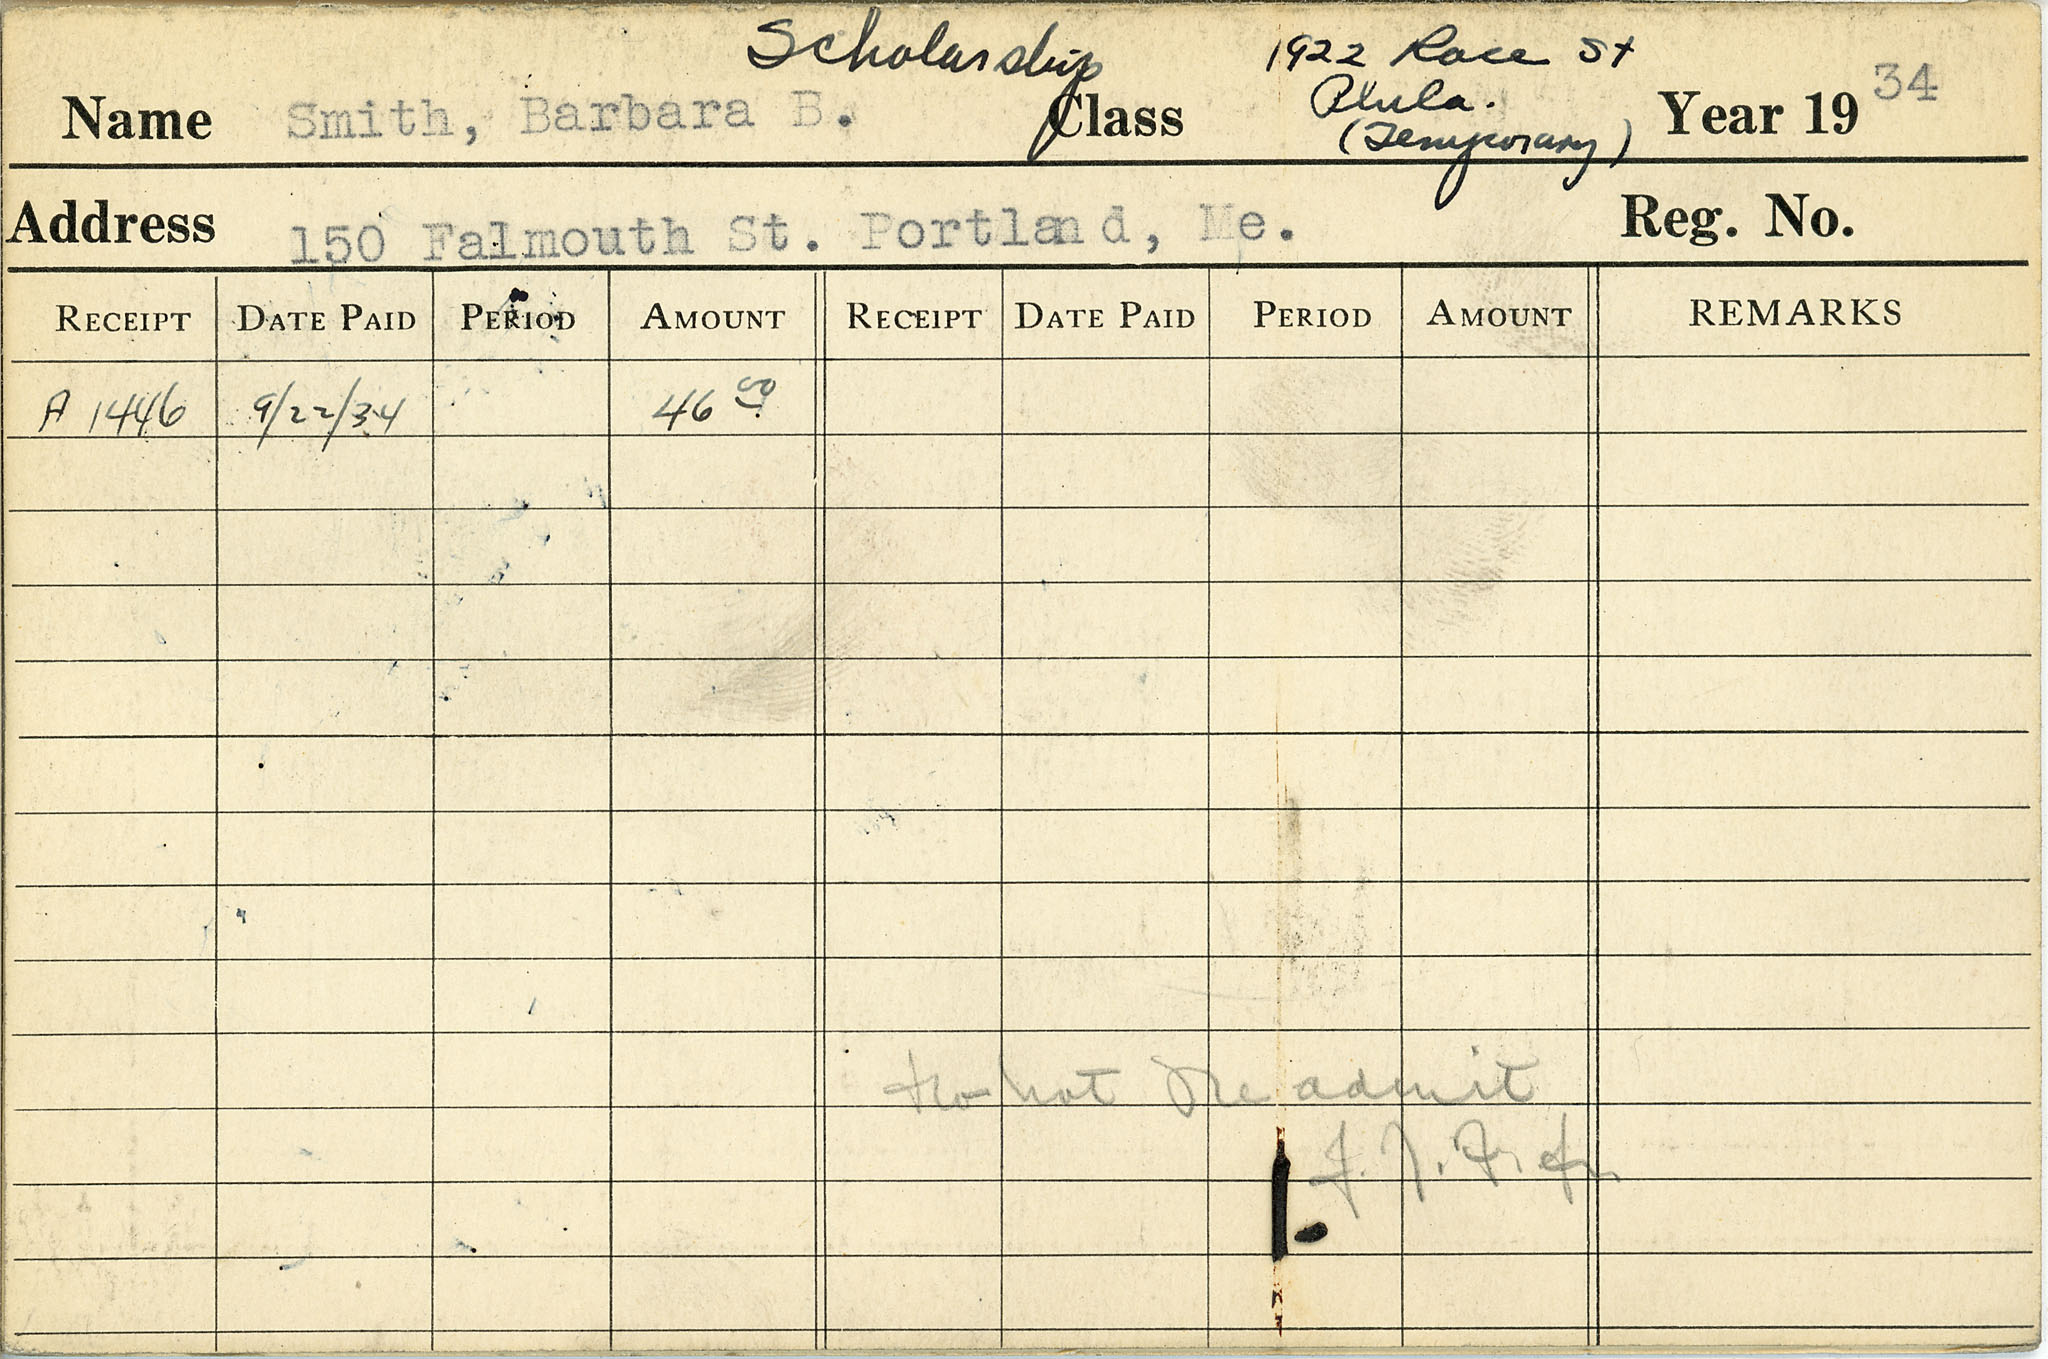 Scholarship 1922 Race St
Phila.
(Temporary)
Name Smith, Barbara B. Class Year 19 34
Address 150 Falmouth St. Portland, Me. Reg. No.
RECEIPT DATE PAID PERIOD AMOUNT RECEIPT DATE PAID PERIOD AMOUNT REMARKS
A 1446 9/22/34 46 00
do not Re admit